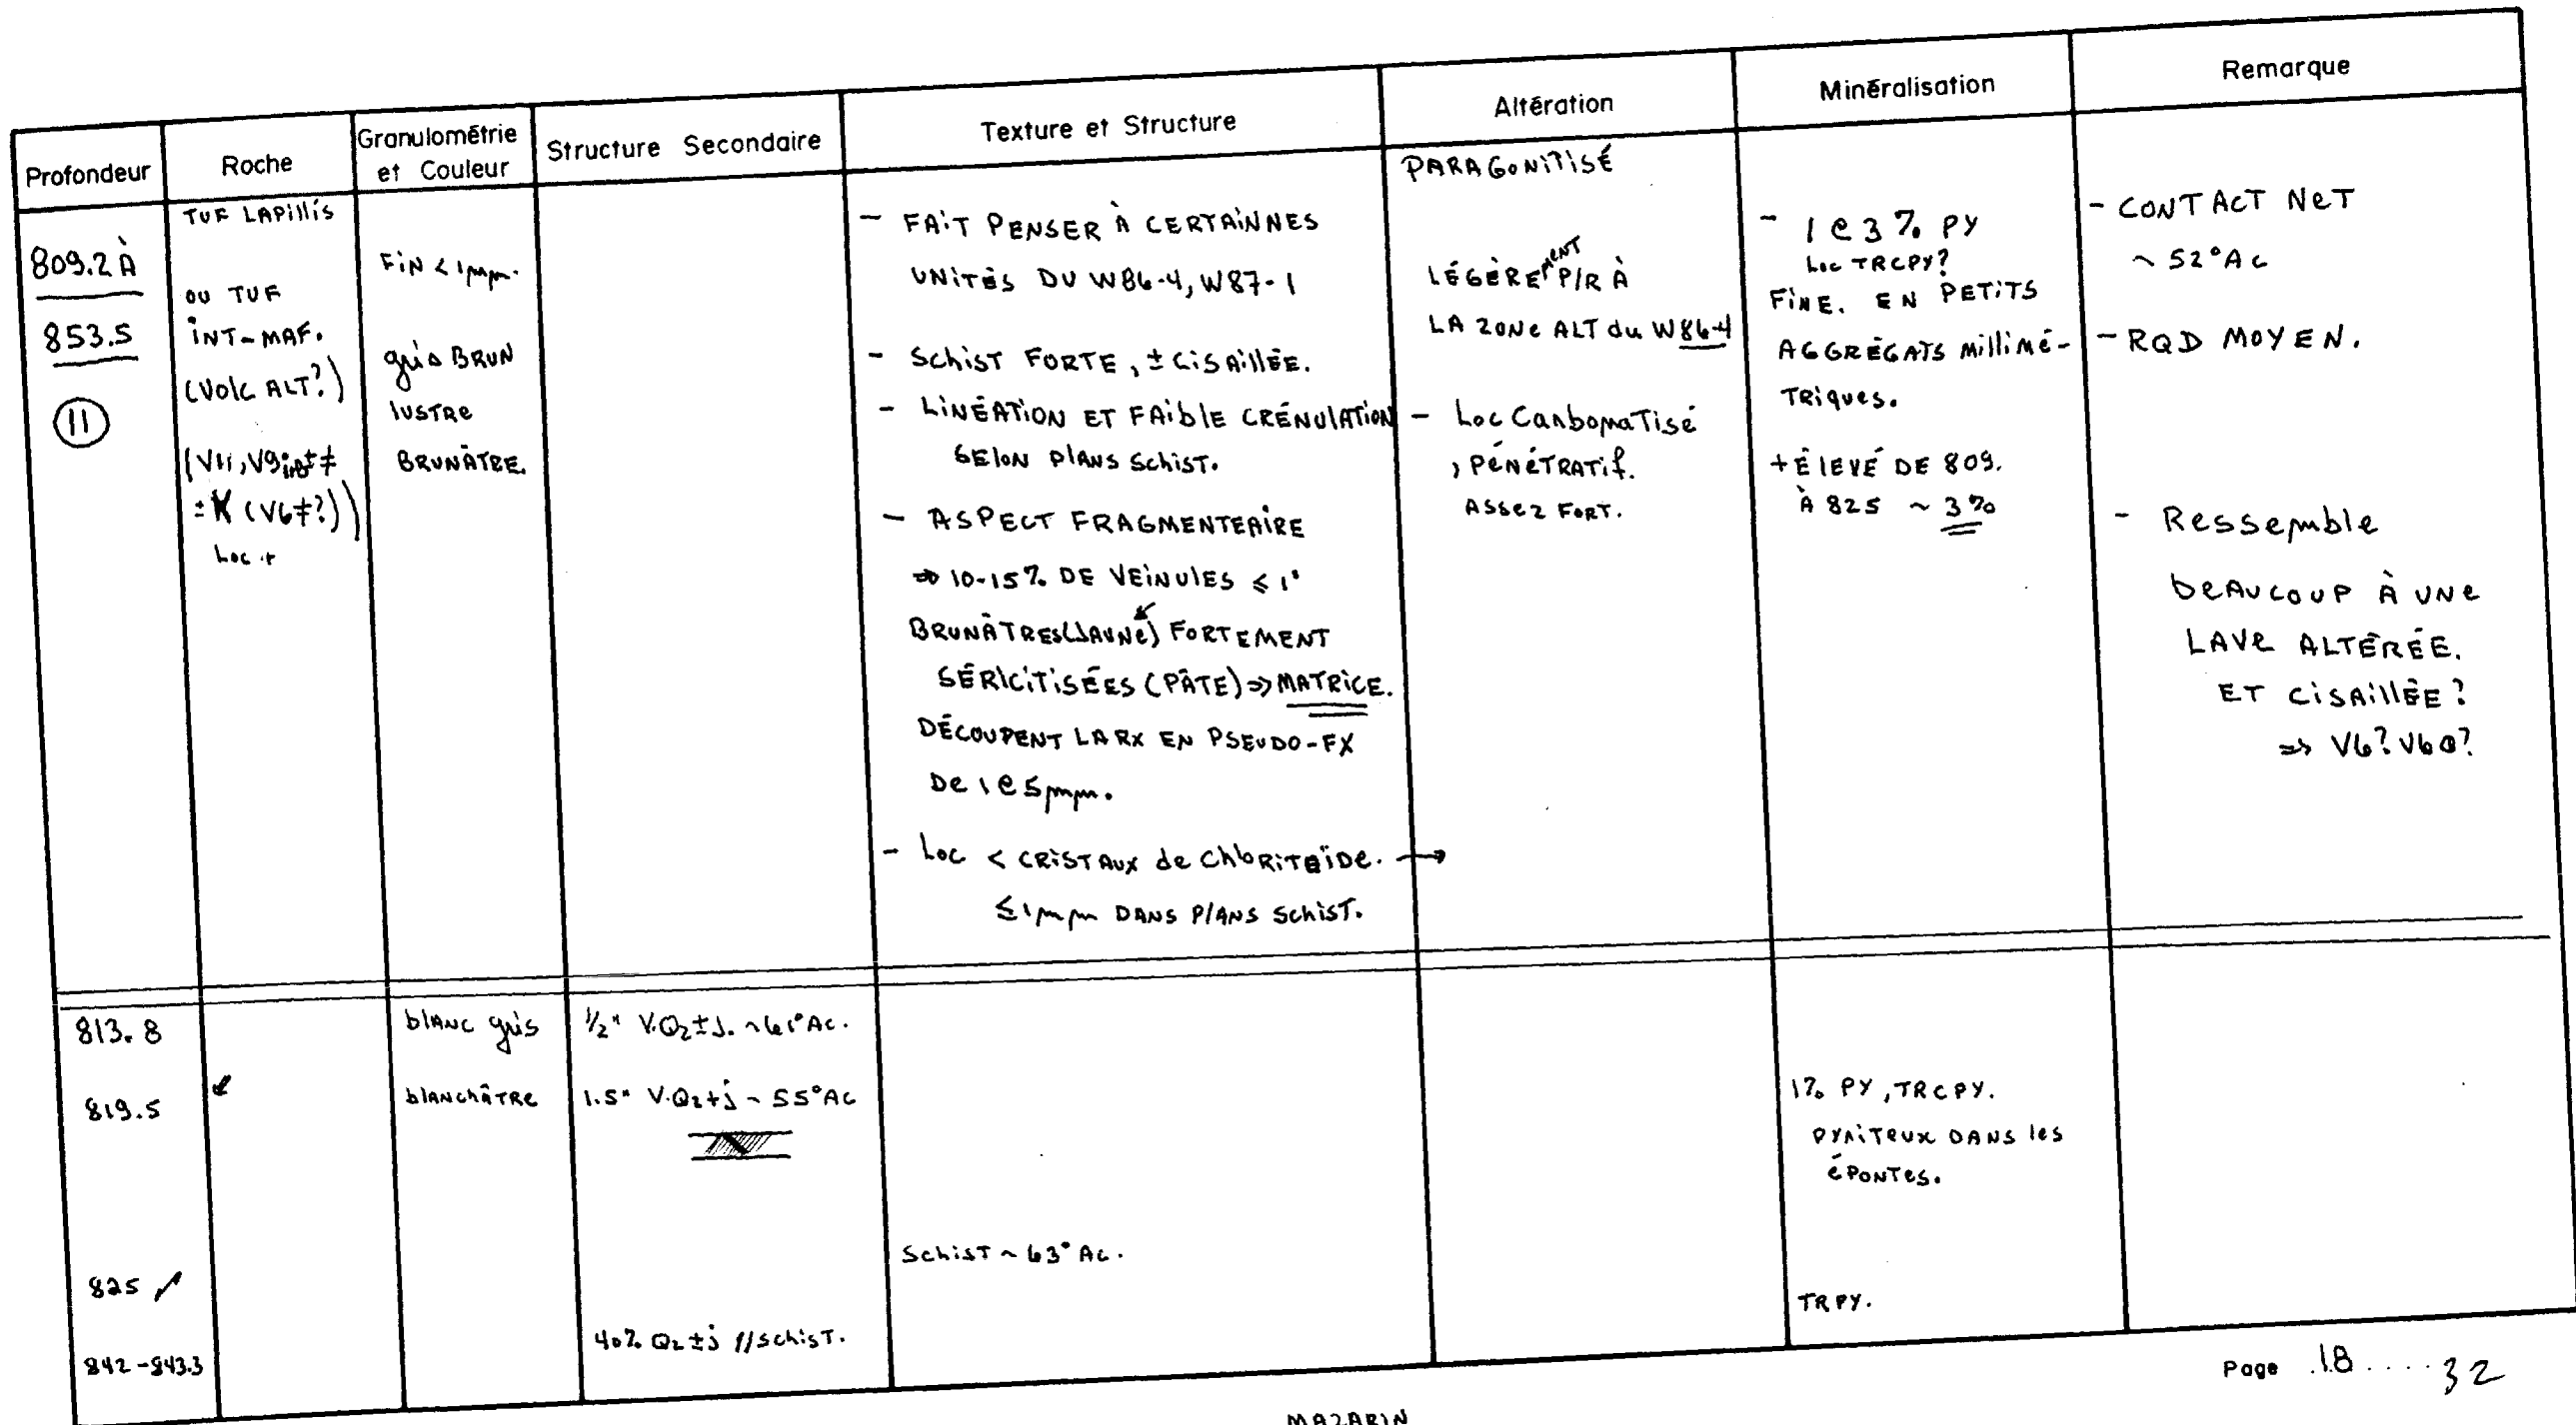 Profondeur
Roche
Granulométrie
et Couleur
Structure Secondaire
Texture et Structure
Altération
Minéralisation
Remarque
809.2 À
853.5
11
TUF LAPILLIS
OU TUF
INT-MAF.
(VOLC ALT?)
± K (V6≠?))
LOC +
FIN < 1mm.
gris BRUN
LUSTRE
BRUNÂTRE.
- FAIT PENSER À CERTAINNES
UNITÉS DU W86-4, W87-1
- SCHIST FORTE, ± CISAILLÉE.
- LINÉATION ET FAIBLE CRÉNULATION
SELON PLANS SCHIST.
- ASPECT FRAGMENTEAIRE
⇒ 10-15% DE VEINULES ≤ 1"
BRUNÂTRES (JAUNE) FORTEMENT
SÉRICITISÉES (PÂTE) ⇒ MATRICE.
DÉCOUPENT LA RX EN PSEUDO-FX
DE 1 @ 5mm.
- LOC < CRISTAUX de CHLORITOÏDE. →
≤ 1mm DANS PLANS SCHIST.
PARAGONITISÉ
LÉGÈREMENT P/R À
LA ZONE ALT du W86-4
- LOC CARBONATISÉ
, PÉNÉTRATIF.
ASSEZ FORT.
- 1 @ 3 % PY
LOC TRCPY?
FINE. EN PETITS
AGGRÉGATS MILLIMÉ-
TRIQUES.
+ ÉLEVÉ DE 809.
À 825 ~ 3%
- CONTACT NET
~ 52° AC
- RQD MOYEN.
- Ressemble
BEAUCOUP À UNE
LAVE ALTÉRÉE.
ET CISAILLÉE?
⇒ V6? V6@?
813.8
blanc gris
1/2" V.QZ ± J. ~ 61° AC.
819.5
blanchâtre
1.5" V.QZ + j ~ 55° AC
1% PY, TRCPY.
PYRITEUX DANS les
ÉPONTES.
825
SCHIST ~ 63° AC.
842-843.3
40% QZ ± j // SCHIST.
TRPY.
Page 18 .... 32
MAZARIN